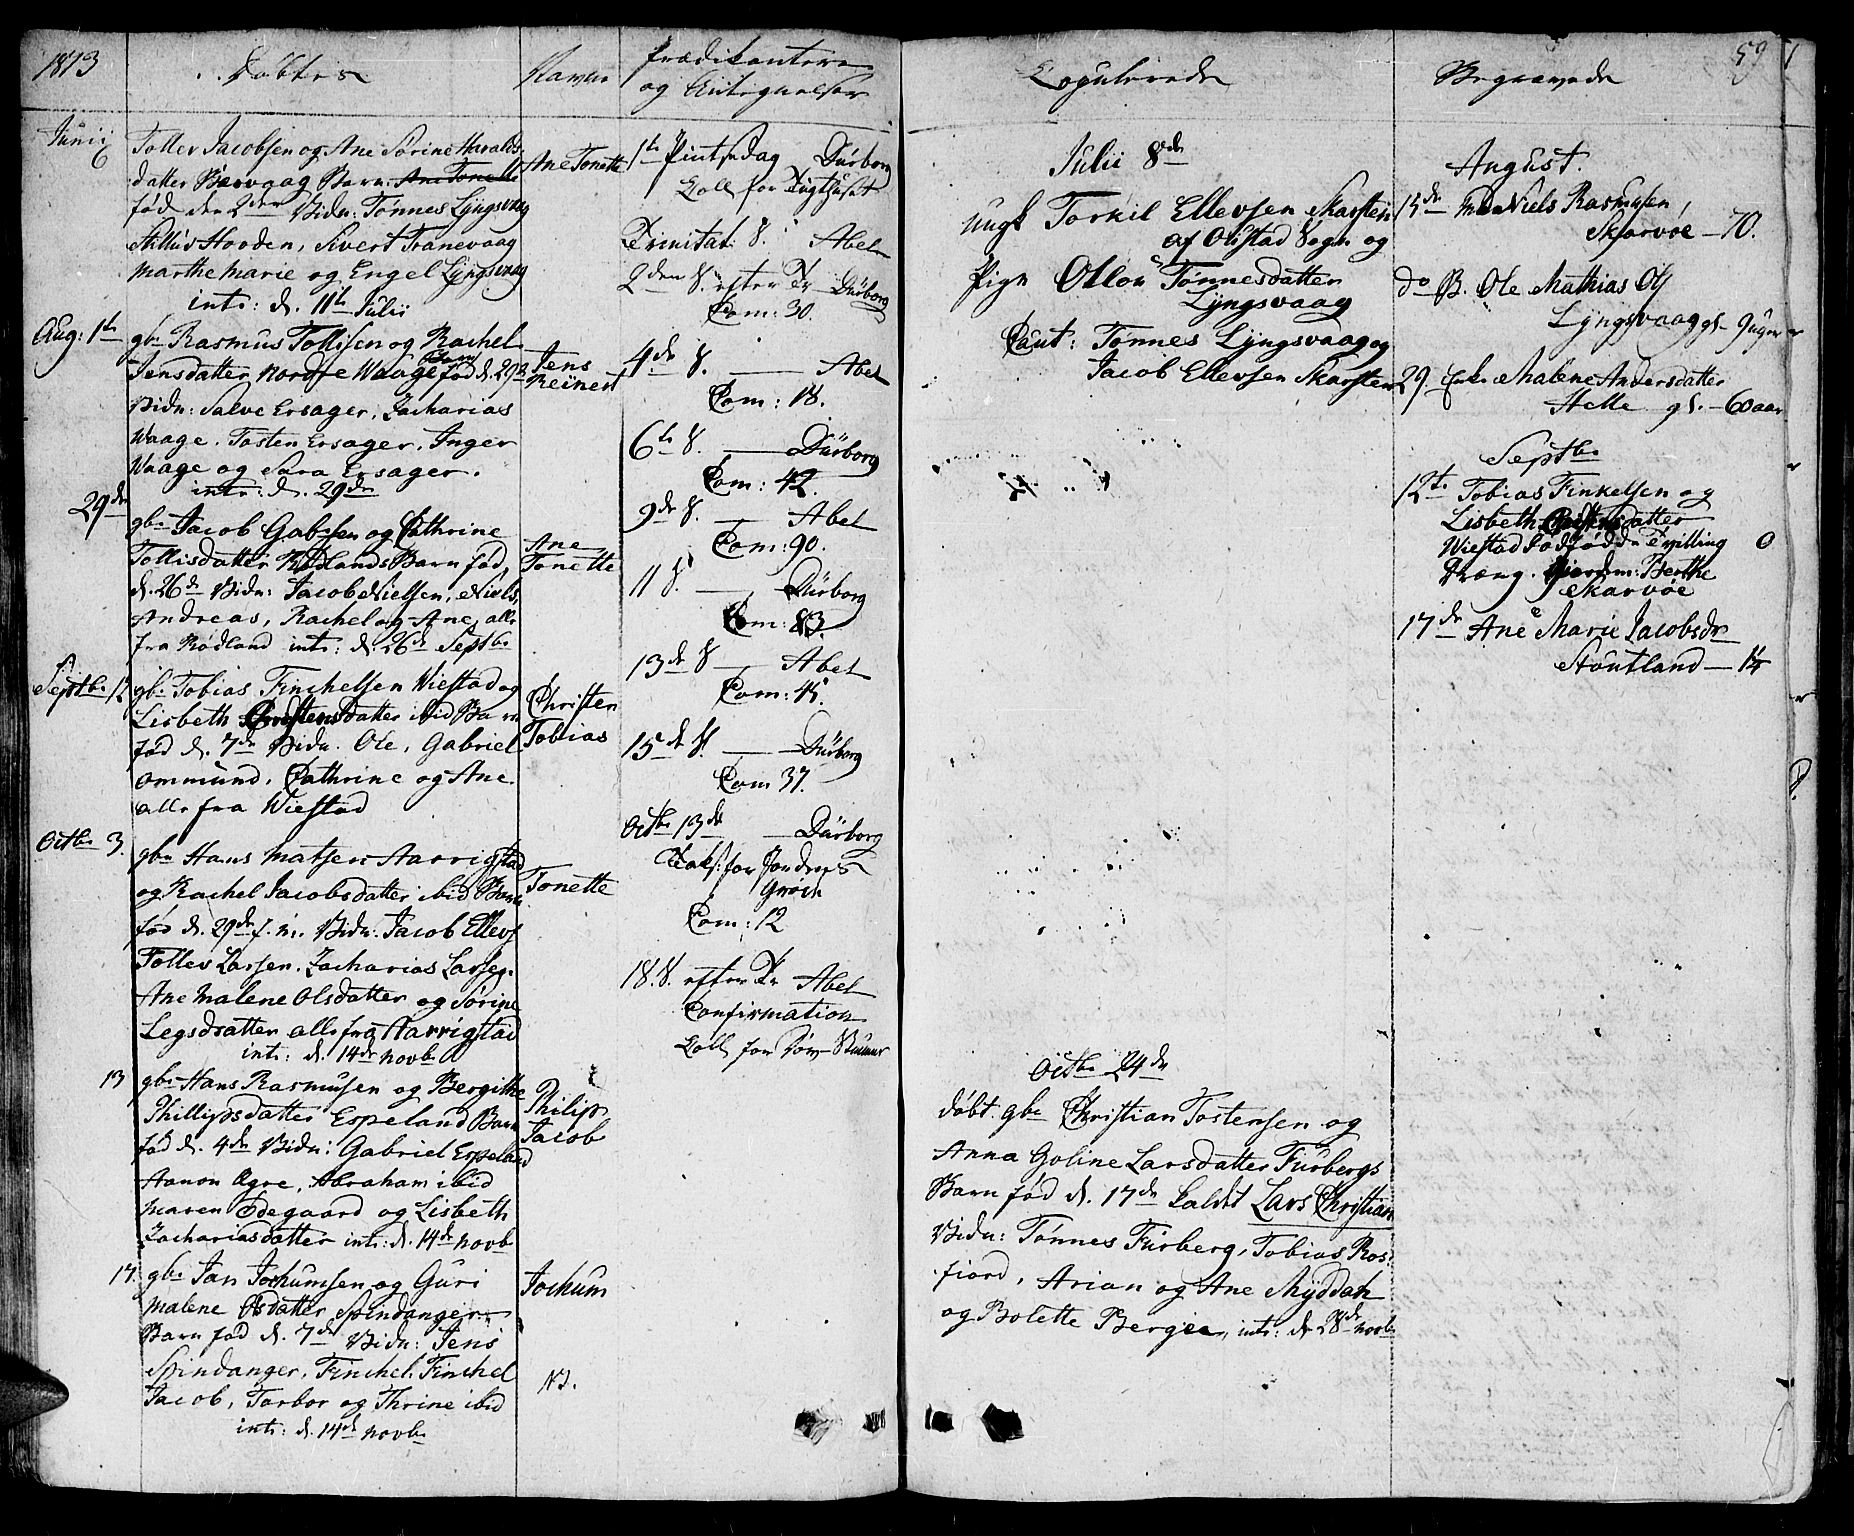 1813
Døbte
Navne
Prædikantere
og Antegnelser
Junii
6
Tollev Jacobsen og Ane Sørine Haralds
datter Børvaag Barn: Ane Tonette
fød den 2den Vidn: Tønnes Lÿngsvaag
Hovden, Sivert Tranevaag
Marthe Marie og Engel Lÿngsvaag
intr: d. 11te Julii
Ane Tonette
Aug: 1te
gbr Rasmus Tollisen og Rachel
Jensdatter Nordre Waage Barn fød d. 29
Vidn: Salve Ersager, Zacharias
Waage. Tosten Ersager, Inger
Waage og Sara Ersager.
intr: d. 29de
Jens
Reinert
29de
gbr Jacob Gabrsen og Cathrine
Tollisdatter Rødlands Barn fød,
d. 26de Vidn: Jacob Nielsen, Niels,
Andreas, Rachel og Ane, alle
fra Rødland intr: d. 26de Septbr
Ane
Tonette
Septbr 12
gbr Tobias Finchelsen Wiestad og
Lisbeth Christensdatter ibid Barn
fød d. 7de Vidn. Ole, Gabriel
Ommund, Cathrine og Ane
alle fra Wiestad
Christen
Tobias
Octbr 3.
gbr Hans Matsen Aarrigstad
og Rachel Jacobsdatter ibid Barn
fød d. 29de f. m. Vidn. Jacob Ellevs
Tollev Larsen. Zacharias Larsen.
Ane Malene Olsdatter og Sørine
Legsdatter alle fra Aarrigstad
intr: d. 14de Novbr
Tonette
13
gbr Hans Rasmusen og Bergitthe
Phillipsdatter Espeland Barn
fød d. 4de Vidn: Gabriel Espeland
Aanon Øgre, Abraham ibid
Maren Ødegaard og Lisbeth
Zachariasdatter intr: d. 14de Novbr
Philip
Jacob
17.
gbr Jan Jochumsen og Guri
Malene Olsdatter Spindanger
Barn fød d. 7de Vidn: Jens
Spindanger, Finchel, Finchel
Jacob, Tarbor og Thrine ibid
intr: d. 14de Novbr
Jochum
1te Pintsedag Dürborg
Coll for Tugthuset
Trinitat: S. Abel
2den S. efter Tr Dürborg
Com: 30.
4de S. Abel
Com: 18.
6te S. Dürborg
Com: 42.
9de S. Abel
Com: 90.
11 S. Dürborg
Com: 83.
13de S Abel
Com: 45.
15de S. Dürborg
Com 37.
Octbr 13de Dürborg
Com: 12
18. S. efter Tr Abel
Confirmation
Coll for Døv Stumme
59
Copulerede
Julii 8de
ungk Torkil Ellevsen Skarsten
af Olistad Sogn og
Pige Ollou Tønnesdatter
Lÿngsvaag
Caut: Tønnes Lÿngsvaag og
Jacob Ellevsen Skarsten
Octbr 24de
døbt. gbr Christian Tostensen og
Anna Goline Larsdatter Fürbergs
Barn fød d. 17de kaldet Lars Christian
Vidn: Tønnes Fürberg, Tobias Ros-
fiord, Arian og Ane Mÿddah
og Bolette Berge, intr: d. 28de Novbr
Begravede
August.
15de Niels Rasmusen,
Skarvøe – 70.
do B. Ole Mathias Ols
Lÿngsvaag gl. 9 uger
29. Enke Malene Andersdatter
Helle gl. – 60 aar
Septbr
12te Tobias Finkelsen og
Lisbeth Christensdatter
Wiestad Dødfødde Tvilling 0
Dræng. Jordem: Berthe
Skarvøe
17de Ane Marie Jacobsdr
Stoutland –